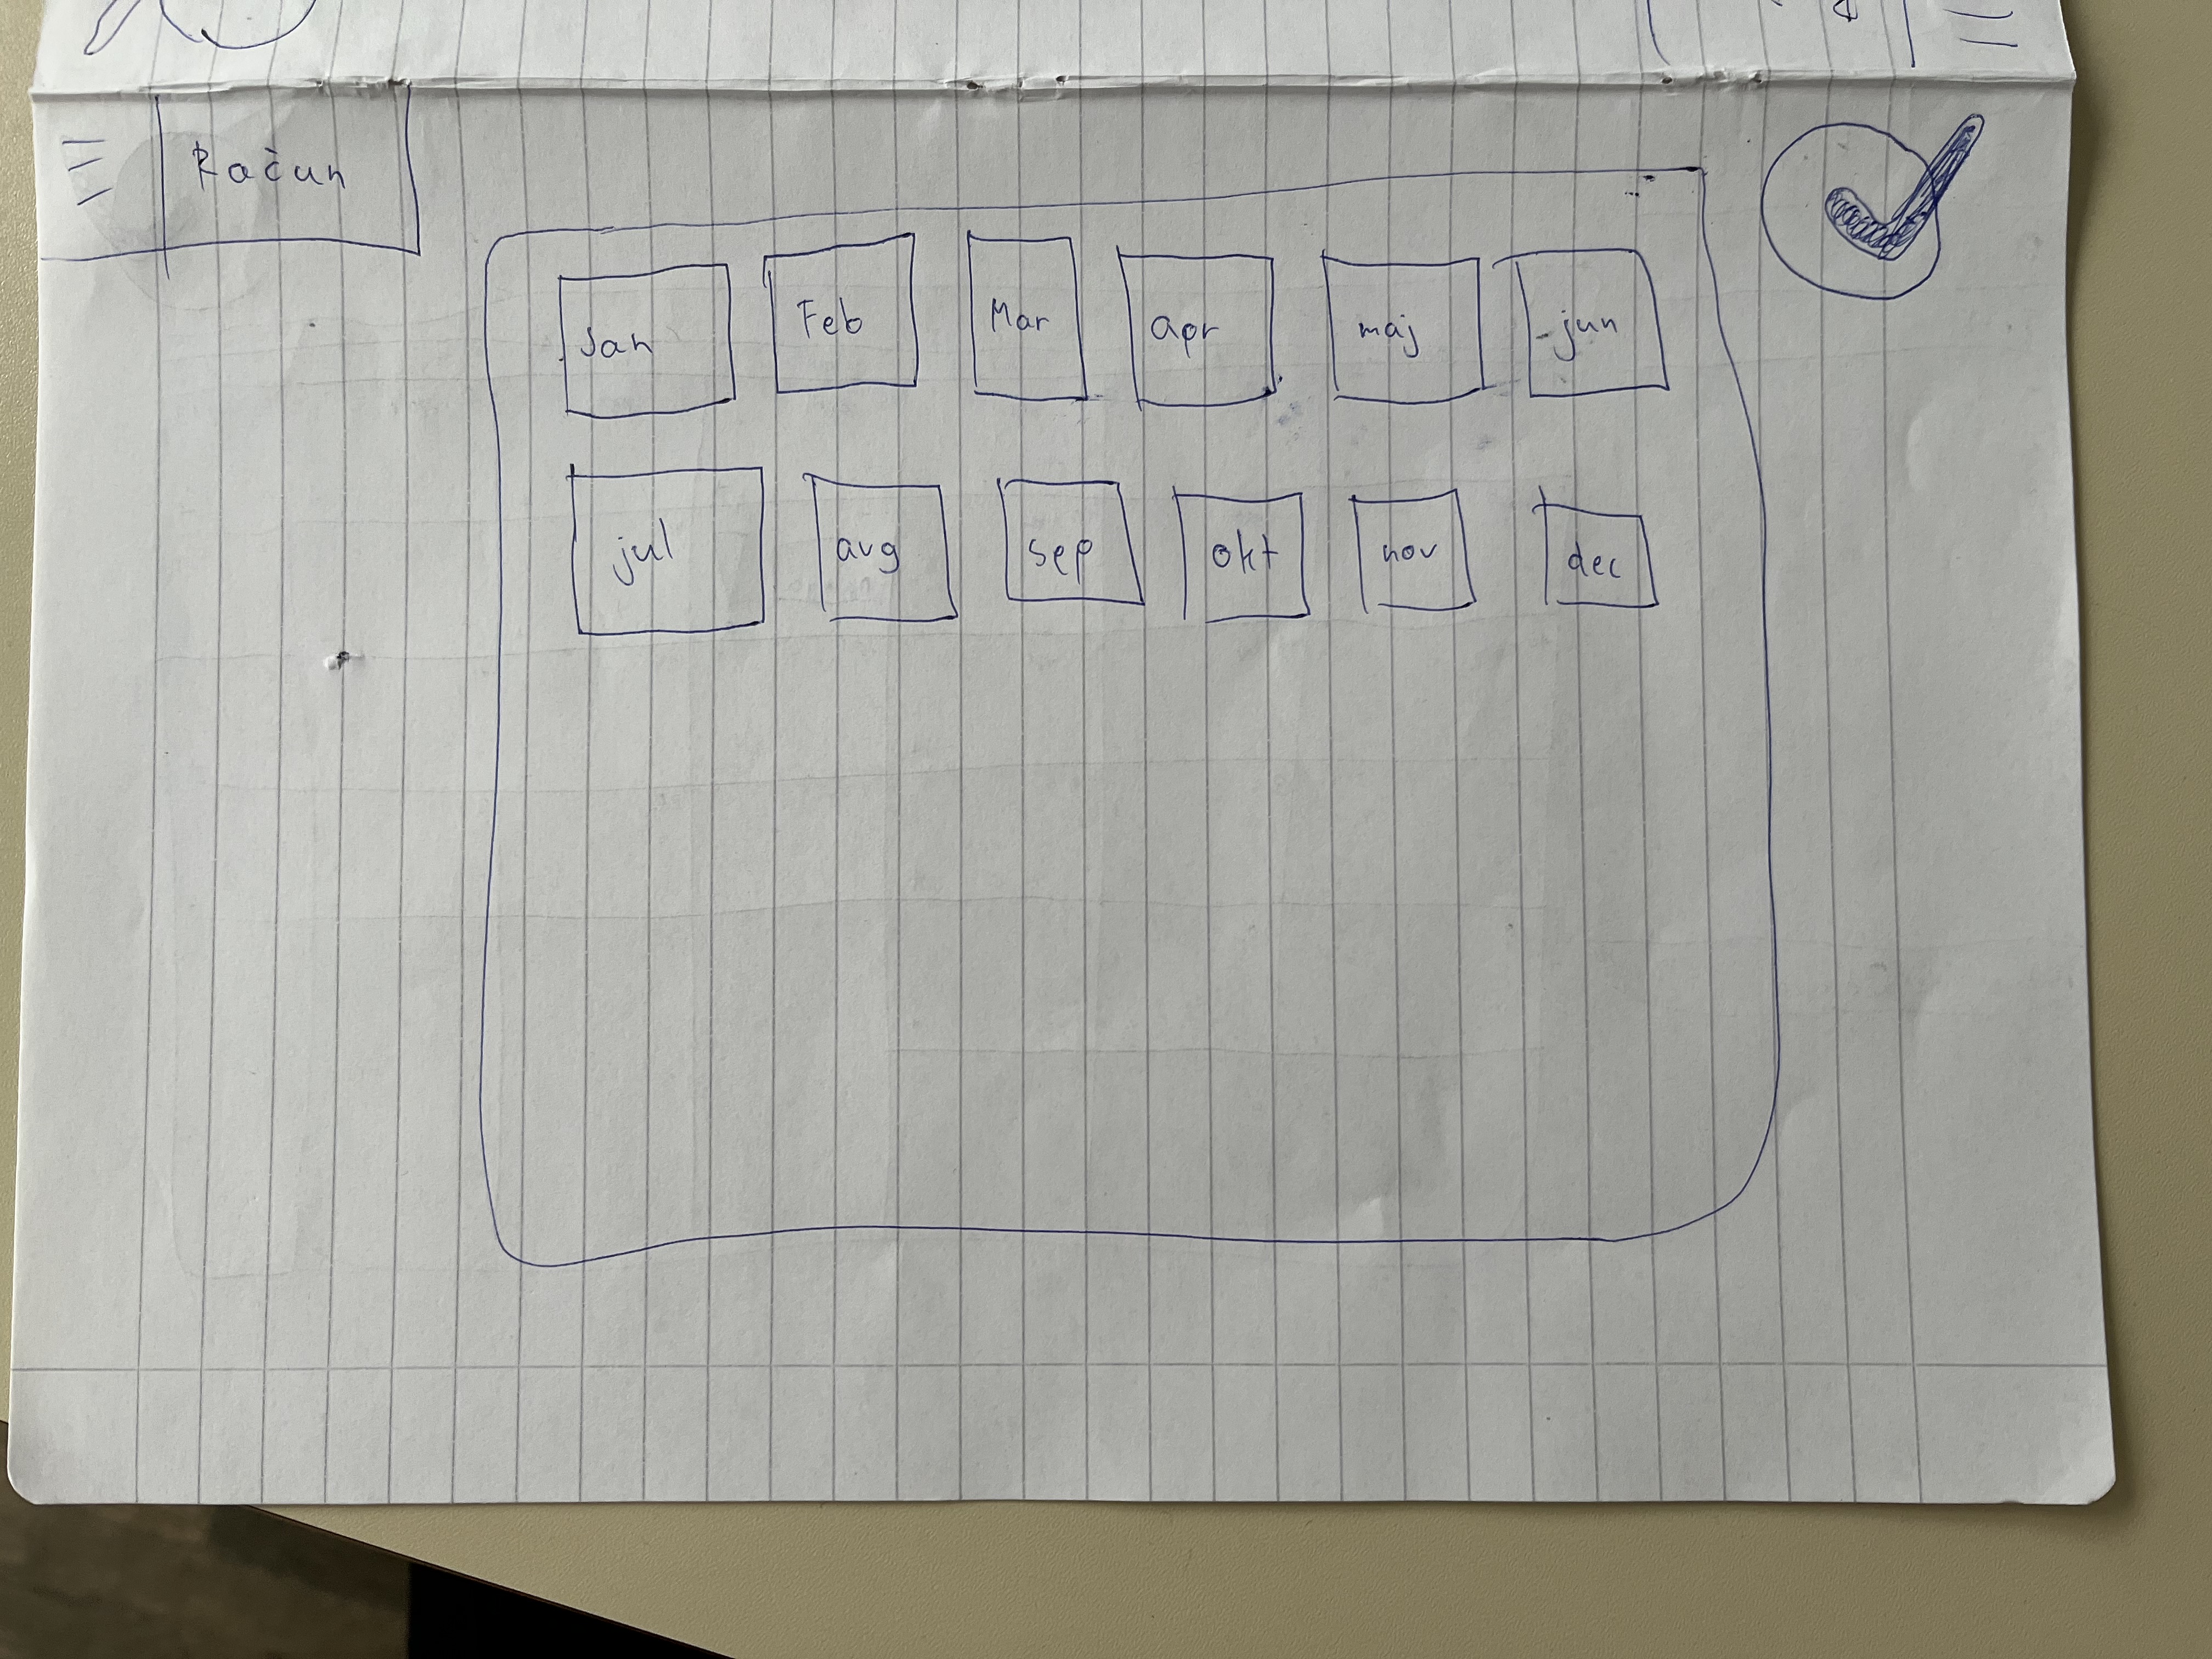 Račun
Jan Feb Mar apr maj jun
jul avg sep okt nov dec